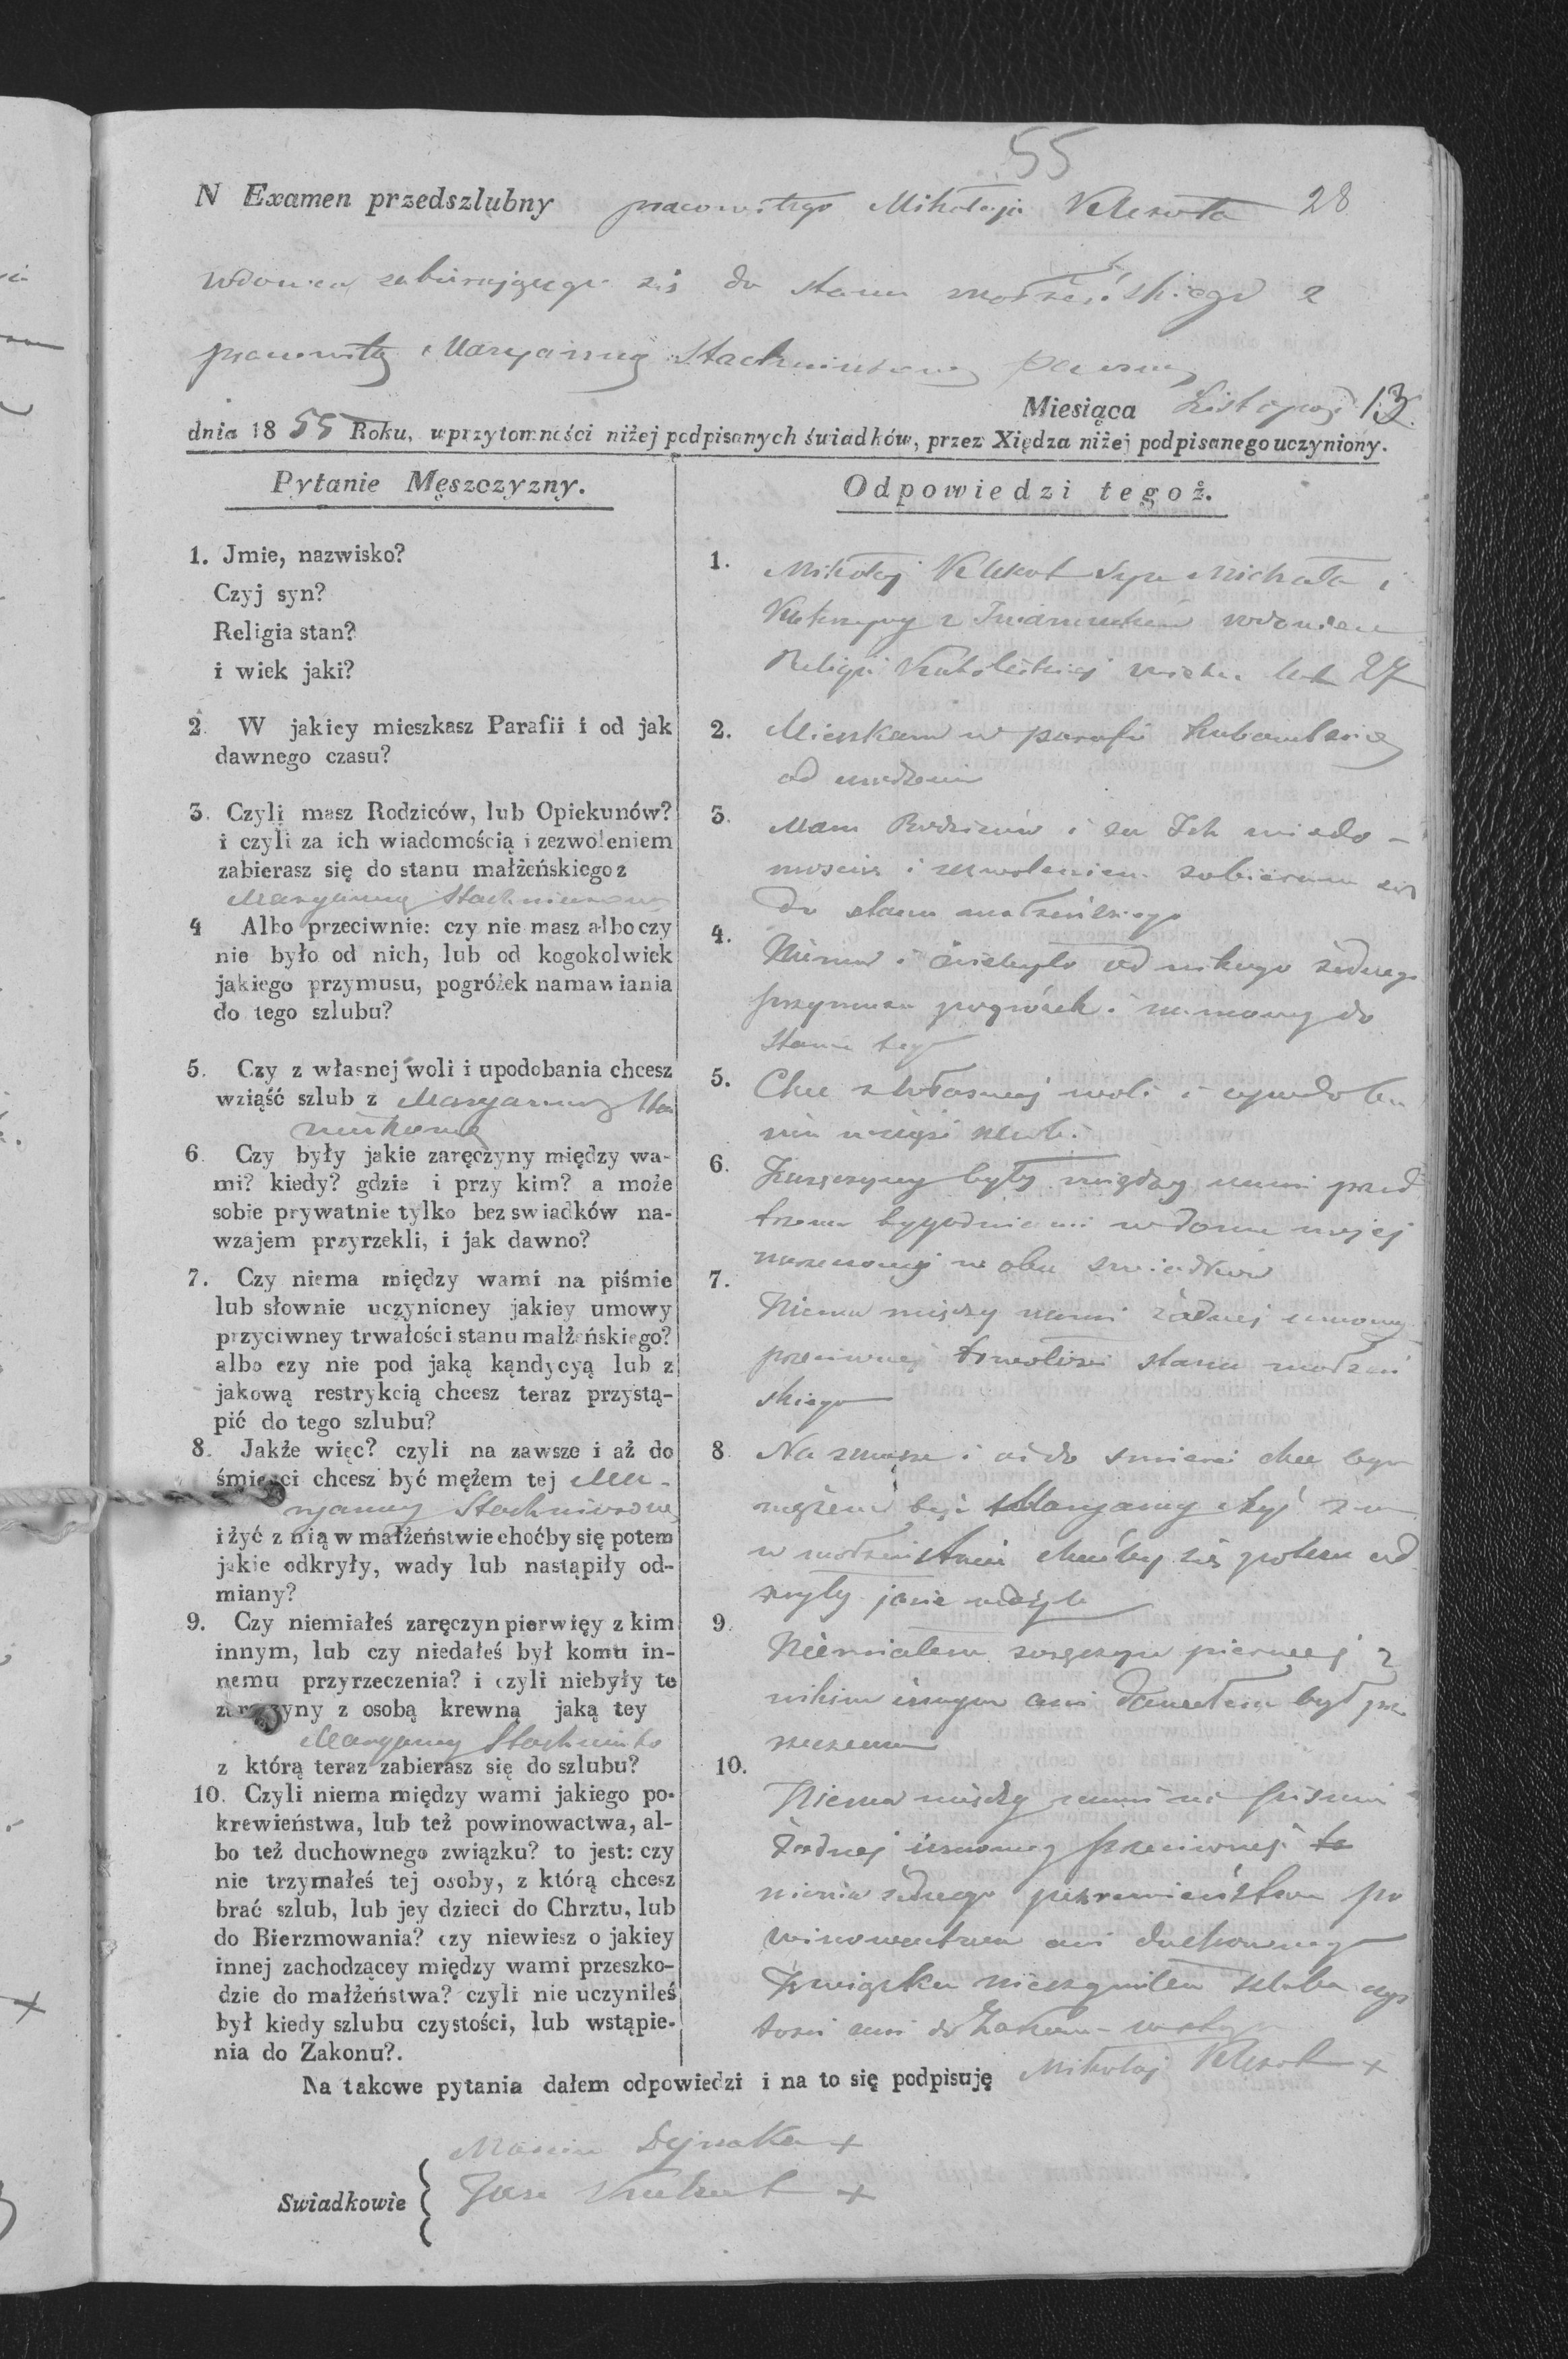 55
N Examen przedszlubny pracowitego Mikołaja Klekota 28
wdowca zabierającego się do stanu małżeńskiego z
pracowitą Maryanną Stachniukowną panną
Miesiąca Listopad 13
dnia 1855 Roku, w przytomności niżej podpisanych świadków, przez Xiędza niżej podpisanego uczyniony.
Pytanie Męszczyzny.
1. Jmie, nazwisko?
Czyj syn?
Religia stan?
i wiek jaki?
2. W jakiey mieszkasz Parafii i od jak
dawnego czasu?
3. Czyli masz Rodziców, lub Opiekunów?
i czyli za ich wiadomością i zezwoleniem
zabierasz się do stanu małżeńskiego z
Maryanną
4 Albo przeciwnie: czy nie masz albo czy
nie było od nich, lub od kogokolwiek
jakiego przymusu, pogróżek namawiania
do tego szlubu?
5. Czy z własnej woli i upodobania chcesz
wziąść szlub z Maryanną
6. Czy były jakie zaręczyny między wa-
mi? kiedy? gdzie i przy kim? a może
sobie prywatnie tylko bez swiadków na-
wzajem przyrzekli, i jak dawno?
7. Czy niema między wami na piśmie
lub słownie uczynioney jakiey umowy
przyciwney trwałości stanu małżeńskiego?
albo czy nie pod jaką kąndycyą lub z
jakową restrykcią chcesz teraz przystą-
pić do tego szlubu?
8. Jakże więc? czyli na zawsze i aż do
śmierci chcesz być mężem tej Ma-
ryanny
i żyć z nią w małżeństwie choćby się potem
jakie odkryły, wady lub nastąpiły od-
miany?
9. Czy niemiałeś zaręczyn pierwięy z kim
innym, lub czy niedałeś był komu in-
nemu przyrzeczenia? i czyli niebyły te
zaręczyny z osobą krewną jaką tey
Maryanny
z którą teraz zabierasz się do szlubu?
10. Czyli niema między wami jakiego po-
krewieństwa, lub też powinowactwa, al-
bo też duchownego związku? to jest: czy
nie trzymałeś tej osoby, z którą chcesz
brać szlub, lub jey dzieci do Chrztu, lub
do Bierzmowania? czy niewiesz o jakiey
innej zachodzącey między wami przeszko-
dzie do małżeństwa? czyli nie uczyniłeś
był kiedy szlubu czystości, lub wstąpie-
nia do Zakonu?.
Odpowiedzi tegoż.
1. Mikołaj Klekot syn Michała i
wdowiec
Religii Katolickiej wieku lat 27
2. Mieszkam w parafii
od urodzenia
3. Mam Rodziców i za Ich wiado-
moscią i zezwoleniem zabieram się
do stanu małżeńskiego
4. Niema i niebyło od nikogo żadnego
przymusu pogrózek i namowy do
stanu tego
5. Chce z własnej woli i upodoba
nia wziąść szlub.
6. Zaręczyny były między nami przed
trzema tygodniami w domu mojej
narzeczonej w obec swiadków
7. Niema między nami żadnej umowy
przeciwnej trwałości stanu małżeń
skiego
8. Na zawsze i aż do smierci chce być
mężem tej Maryanny i żyć z nią
w małżenstwie choćby się potem od
kryły jakie wady
9. Niemiałem zaręczyn pierwej z
nikim innym ani
10. Niema między nami na piśmie
żadnej umowy przeciwnej
niema żadnego pokrewieństwa po
winowactwa ani duchownego
Związku nieczyniłem szlubu czys
tości ani do Zakonu
Na takowe pytania dałem odpowiedzi i na to się podpisuję Mikołaj Klekot +
Swiadkowie
Marcin +
Jan +